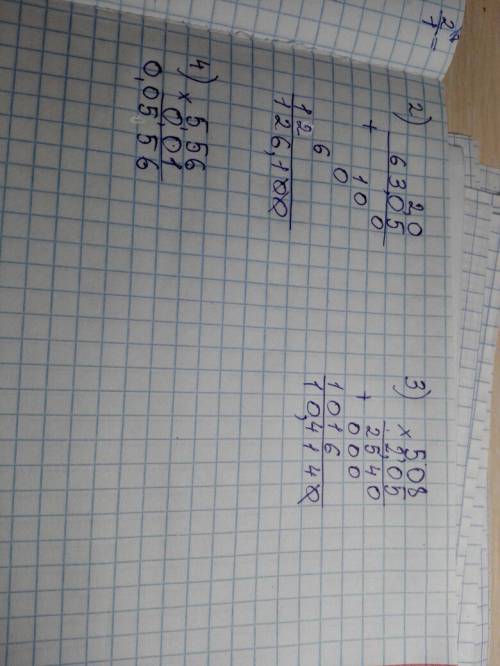 2) 20
63,05
0
+ 10
0
6
12
126,100
3) × 5,08
2,05
2540
+ 000
1016
10,4140
4) × 5,56
0,01
0,0556